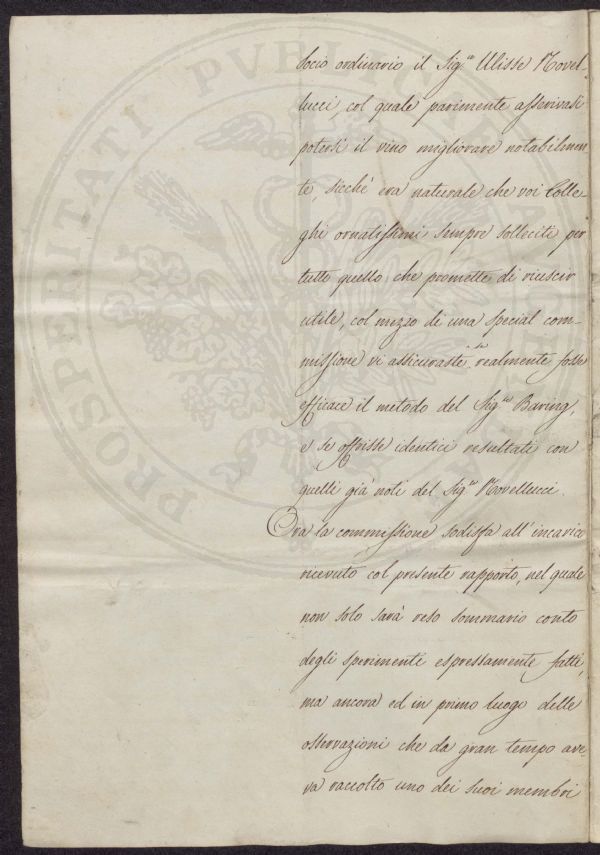 socio ordinario il Sig.re Ulisse Novel-
lucci, col quale parimente asserivasi
potersi il vino migliorare notabilmen
te, sicchè era naturale che voi Colle-
ghi ornatissimi, sempre solleciti per
tutto quello che promette di riuscir
utile, col mezzo di una special com-
missione vi assicuraste se realmente fosse
efficace il metodo del Sig.re Baring,
e se offrisse identici resultati con
quelli già noti del Sig.re Novellucci.
Ora la commissione sodisfa all'incarico
ricevuto col presente rapporto, nel quale
non solo sarà reso sommario conto
degli sperimenti espressamente fatti,
ma ancora ed in primo luogo delle
osservazioni che da gran tempo ave-
va raccolto uno dei suoi membri
PROSPERITATI PVBLICAE